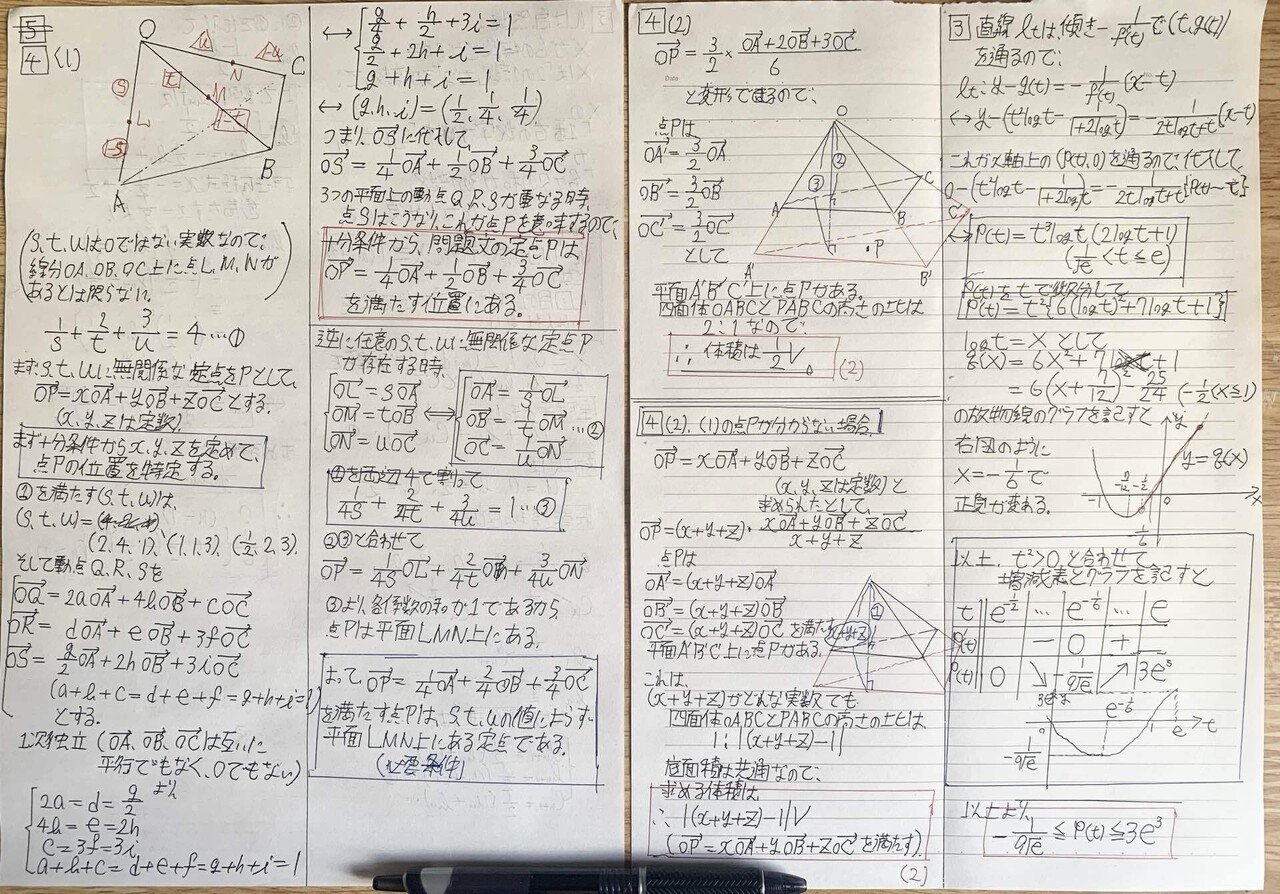 5
4 (1)
O
N
C
M
L
A
B
S
1-S
t
1-t
u
1-u
(s, t, uは0ではない実数なので、
線分OA, OB, OC上に点L, M, Nが
あるとは限らない。)
1/s + 2/t + 3/u = 4 … ①
まずs, t, uに無関係な定点をPとして、
OP = xOA + yOB + zOC とする。
(x, y, zは定数)
まず十分条件からx, y, zを定めて、
点Pの位置を特定する。
①を満たす(s, t, u)は、
(s, t, u) =
(2, 4, 1), (1, 1, 3), (1/2, 2, 3).
そして動点Q, R, Sを
OQ = 2aOA + 4bOB + cOC
OR = dOA + eOB + 3fOC
OS = g/2 OA + 2hOB + 3iOC
(a+b+c = d+e+f = g+h+i = 1)
とする。
1次独立 (OA, OB, OCは互いに
平行でもなく、0でもない)
より
2a = d = g/2
4b = e = 2h
c = 3f = 3i
a+b+c = d+e+f = g+h+i = 1
↔ g/4 + h/2 + 3i = 1
g/2 + 2h + i = 1
g + h + i = 1
↔ (g, h, i) = (1/2, 1/4, 1/4)
つまりOSに代入して、
OS = 1/4 OA + 1/2 OB + 3/4 OC
3つの平面上の動点Q, R, Sが重なる時、
点Sはこうなり、これが点Pを意味するので、
十分条件から、問題文の定点Pは
OP = 1/4 OA + 1/2 OB + 3/4 OC
を満たす位置にある。
逆に任意のs, t, uに無関係な定点P
が存在する時、
OL = sOA
OM = tOB
ON = uOC
⟺
OA = 1/s OL
OB = 1/t OM … ②
OC = 1/u ON
①を両辺4で割って
1/4s + 2/4t + 3/4u = 1 … ③
②③と合わせて
OP = 1/4s OL + 2/4t OM + 3/4u ON
③より、各係数の和が1であるから
点Pは平面LMN上にある。
よって、OP = 1/4 OA + 2/4 OB + 3/4 OC
を満たす点Pは、s, t, uの値によらず
平面LMN上にある定点である。
(必要条件)
4 (2)
OP = 3/2 × (OA + 2OB + 3OC)/6
と変形できるので、
点Pは
OA' = 3/2 OA
OB' = 3/2 OB
OC' = 3/2 OC
として
O
②
③
A
B
C
C'
A'
B'
P
平面A'B'C'上に点Pがある。
四面体OABCとPABCの高さの比は
2:1なので、
∴ 体積は 1/2 V。
(2)
4 (2). (1)の点Pが分からない場合.
OP = xOA + yOB + zOC
(x, y, zは定数)と
求められたとして、
OP = (x+y+z)・(xOA + yOB + zOC)/(x+y+z)
点Pは
OA' = (x+y+z)OA
OB' = (x+y+z)OB
OC' = (x+y+z)OC を満たす
平面A'B'C'上に点Pがある。
①
(x+y+z)
これは、
(x+y+z)がどんな実数でも
四面体OABCとPABCの高さの比は
1 : |(x+y+z)-1|
底面積は共通なので、
求める体積は
∴ |(x+y+z)-1|V
(OP = xOA + yOB + zOC を満たす).
(2)
3 直線ltは傾き -1/f'(t) で(t, g(t))
を通るので、
lt: y - g(t) = -1/f'(t) (x-t)
↔ y - (t²logt - t/(1+2logt)) = -1/(2tlogt+t) (x-t)
これがx軸上の(p(t), 0)を通るので、代入して
0 - (t²logt - t/(1+2logt)) = -1/(2tlogt+t) {p(t)-t}
↔ p(t) = t³logt (2logt+1)
(1/√e < t ≦ e)
p(t)をtで微分して
p'(t) = t²{6(logt)²+7logt+1}
logt = X として
g(X) = 6X² + 7X + 1
= 6(X + 7/12)² - 25/24 (-1/2 < X ≦ 1)
の放物線のグラフを記すと
右図のように
X = -1/6 で
正負が変わる。
y
y = g(X)
-1
-7/12
-1/2
0
X
-1/6
以上、t²>0と合わせて
増減表とグラフを記すと
t e^-1/2 … e^-1/6 … e
p'(t) - 0 +
p(t) 0 ↘ -1/9√e ↗ 3e³
3e³
e^-1/2
e^-1/6
0
1
e
t
-1/9√e
以上より、
-1/9√e ≦ p(t) ≦ 3e³